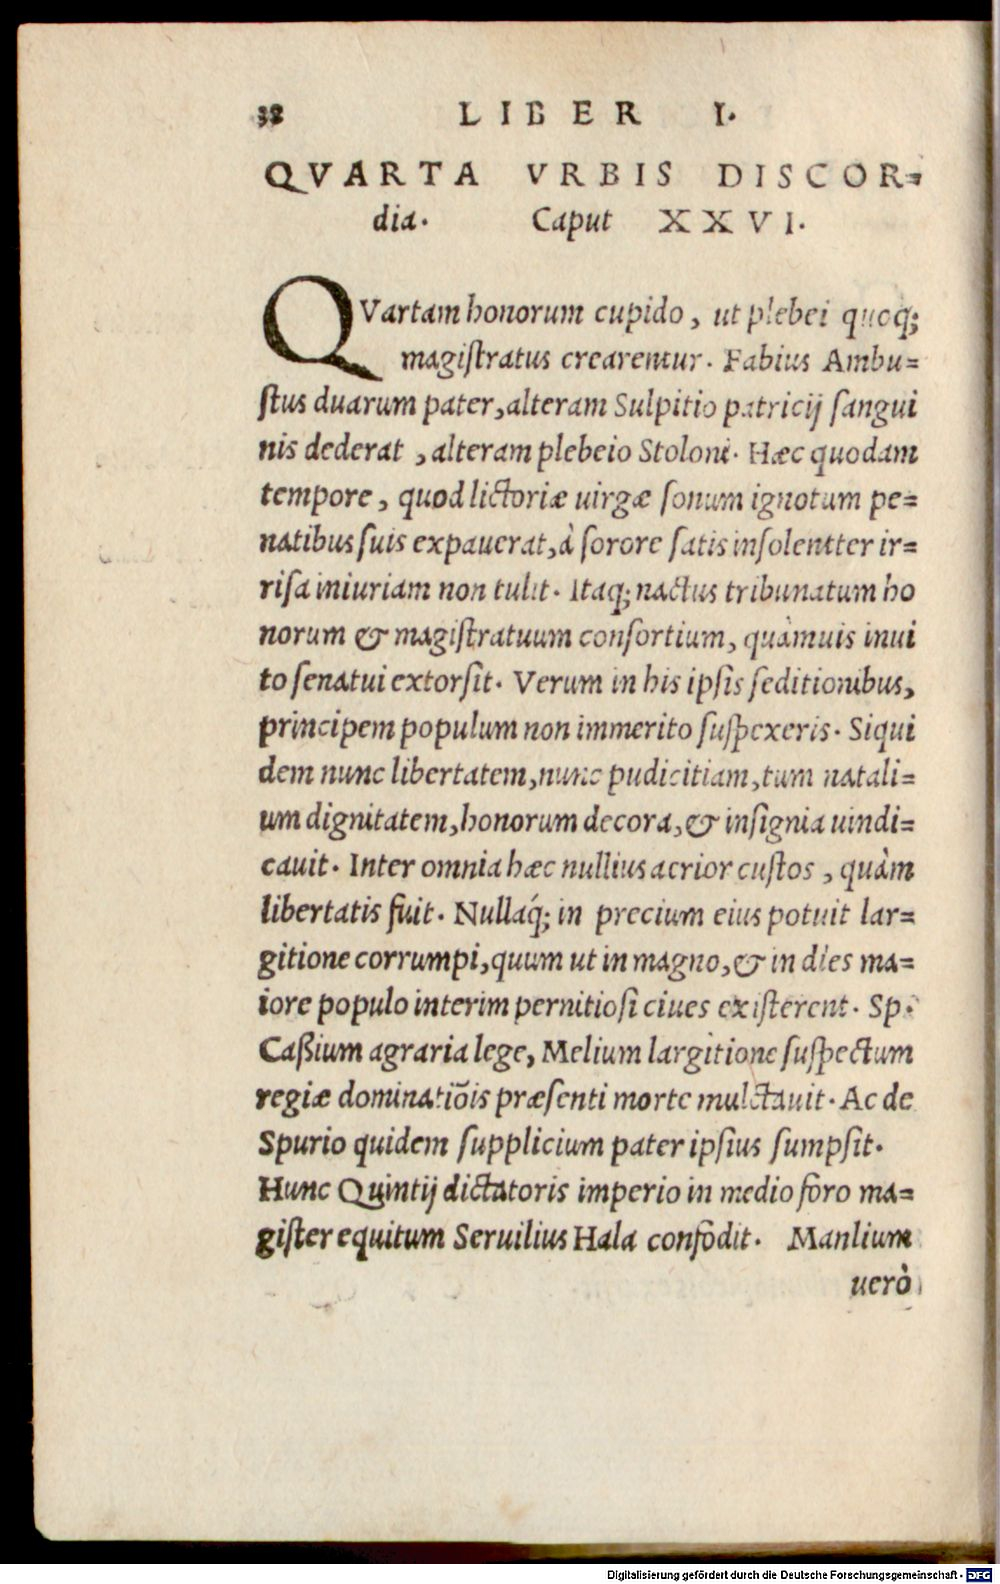 38 LIBER I.
QVARTA VRBIS DISCOR=
dia. Caput XXVI.
QVartam honorum cupido, ut plebei quoq;
magiſtratus crearentur. Fabius Ambu=
ſtus duarum pater, alteram Sulpitio patricij ſangui
nis dederat, alteram plebeio Stoloni. Hæc quodam
tempore, quod lictoriæ uirgæ ſonum ignotum pe=
natibus ſuis expauerat, à ſorore ſatis inſolenter ir=
riſa iniuriam non tulit. Itaq; nactus tribunatum ho
norum & magiſtratuum conſortium, quàmuis inui
to ſenatui extorſit. Verum in his ipſis ſeditionibus,
principem populum non immerito ſuſpexeris. Siqui
dem nunc libertatem, nunc pudicitiam, tum natali=
um dignitatem, honorum decora, & inſignia uindi=
cauit. Inter omnia hæc nullius acrior cuſtos, quàm
libertatis fuit. Nullaq́; in precium eius potuit lar=
gitione corrumpi, quum ut in magno, & in dies ma=
iore populo interim pernitioſi ciues exiſterent. Sp.
Caßium agraria lege, Melium largitione ſuſpectum
regiæ dominatiōis præſenti morte mulctauit. Ac de
Spurio quidem ſupplicium pater ipſius ſumpſit.
Hunc Quintij dictatoris imperio in medio foro ma=
giſter equitum Seruilius Hala confodit. Manlium
uerò
Digitalisierung gefördert durch die Deutsche Forschungsgemeinschaft - DFG